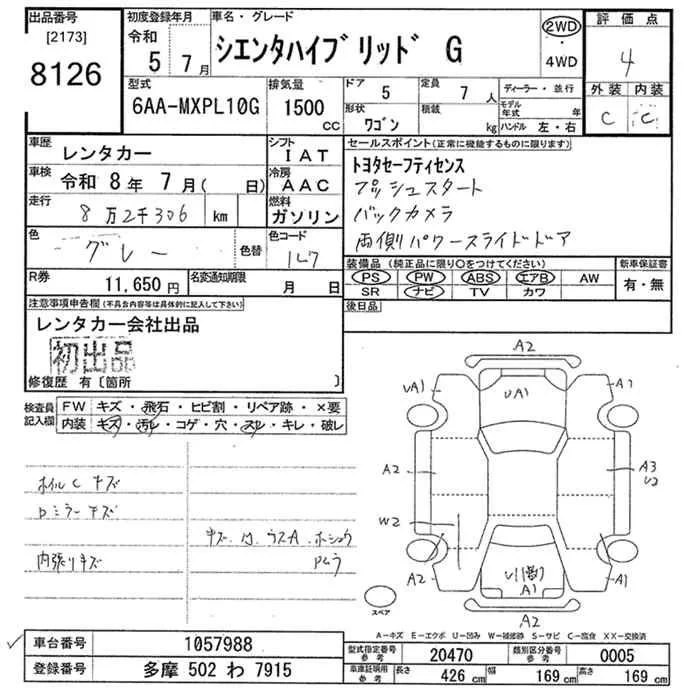 出品番号 初度登録年月 車名・グレード 評価点
[2173] 令和 5 7月 シエンタハイブリッド G 2WD・4WD 4
8126
型式 排気量 ドア 5 定員 7人 ディーラー・並行 外装 内装
6AA-MXPL10G 1500cc 形状 ワゴン 積載 kg モデル年式 年 C C
ハンドル 左・右
車歴 レンタカー シフト IAT セールスポイント(正常に機能するものに限ります)
車検 令和 8年 7月( 日) 冷房 AAC トヨタセーフティセンス
走行 8万2千306 km 燃料 ガソリン プッシュスタート
バックカメラ
色 グレー 色替 色コード 1L7 両側パワースライドドア
R券 11,650円 名変通知期限 月 日 装備品(純正品に限り○をつけてください) 新車保証書
PS PW ABS エアB AW 有・無
SR ナビ TV カワ
注意事項申告欄(不具合内容等は具体的に記入して下さい) 後日品
レンタカー会社出品
初出品
修復歴 有〔箇所 〕
検査員記入欄 FW キズ・飛石・ヒビ割・リペア跡・×要
内装 キズ・汚レ・コゲ・穴・スレ・キレ・破レ
ホイルC キズ
Dミラーキズ
内張りキズ
A2
UA1 UA1 A1
A2 A3
U2
W2
A2 A1
A1
A2
スペア
A-キズ E-エクボ U-凹み W-補修跡 S-サビ C-腐食 XX-交換済
車台番号 1057988 型式指定番号 参考 20470 類別区分番号 参考 0005
登録番号 多摩 502 わ 7915 車庫証明用 参考 長さ 426 cm 幅 169 cm 高さ 169 cm